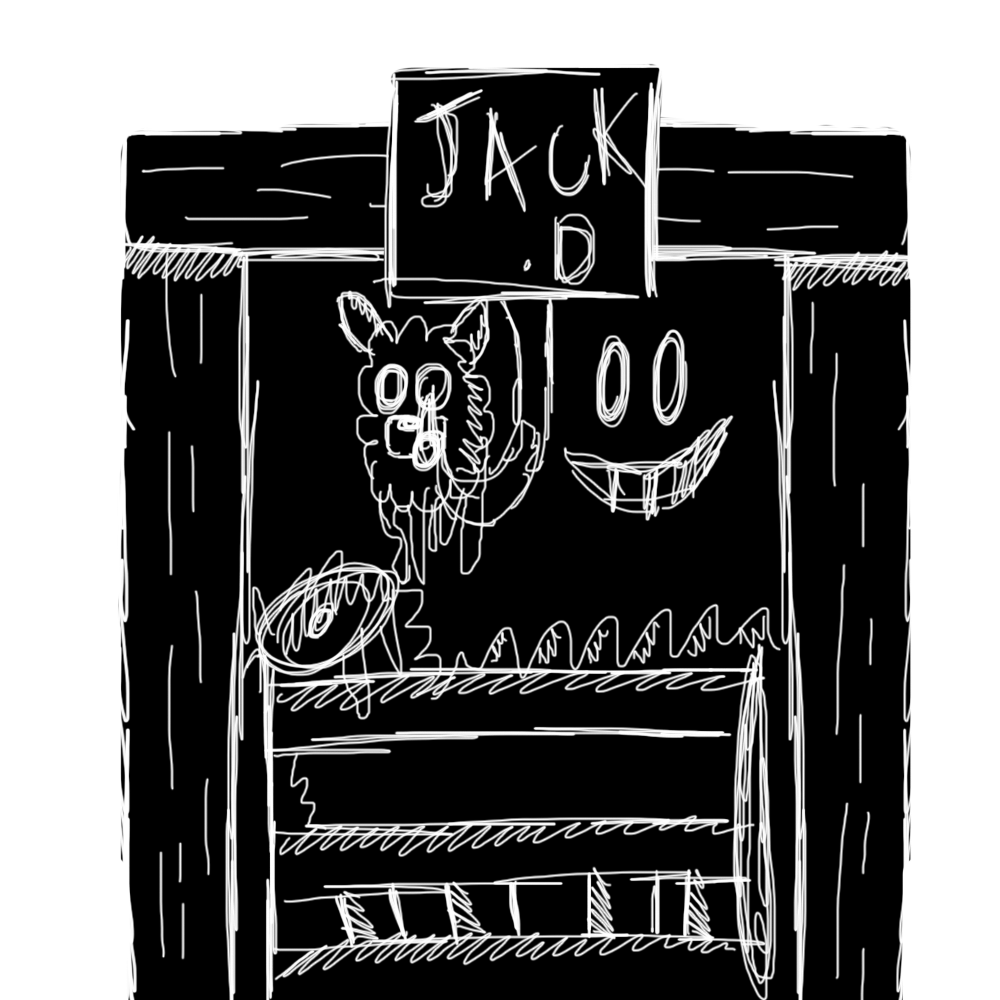 JACK
.D